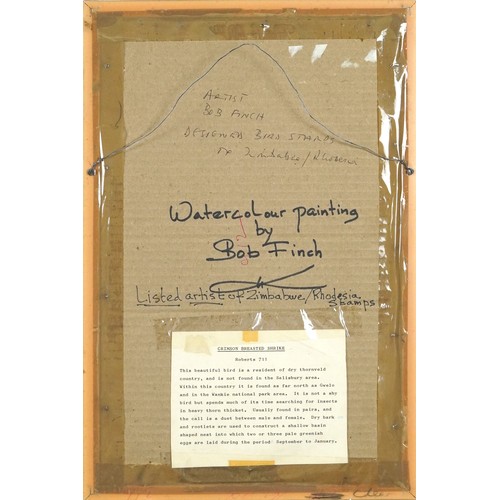 ARTIST
BOB FINCH
DESIGNED BIRD STAMPS
Zimbabwe/Rhodesia
Watercolour painting
by
Bob Finch
Listed artist of Zimbabwe/Rhodesia
stamps
CRIMSON BREASTED SHRIKE
Roberts 711
This beautiful bird is a resident of dry thornveld
country, and is not found in the Salisbury area.
Within this country it is found as far north as Gwelo
and in the Wankie national park area. It is not a shy
bird but spends much of its time searching for insects
in heavy thorn thicket. Usually found in pairs, and
the call is a duet between male and female. Dry bark
and rootlets are used to construct a shallow basin
shaped nest into which two or three pale greenish
eggs are laid during the period September to January.